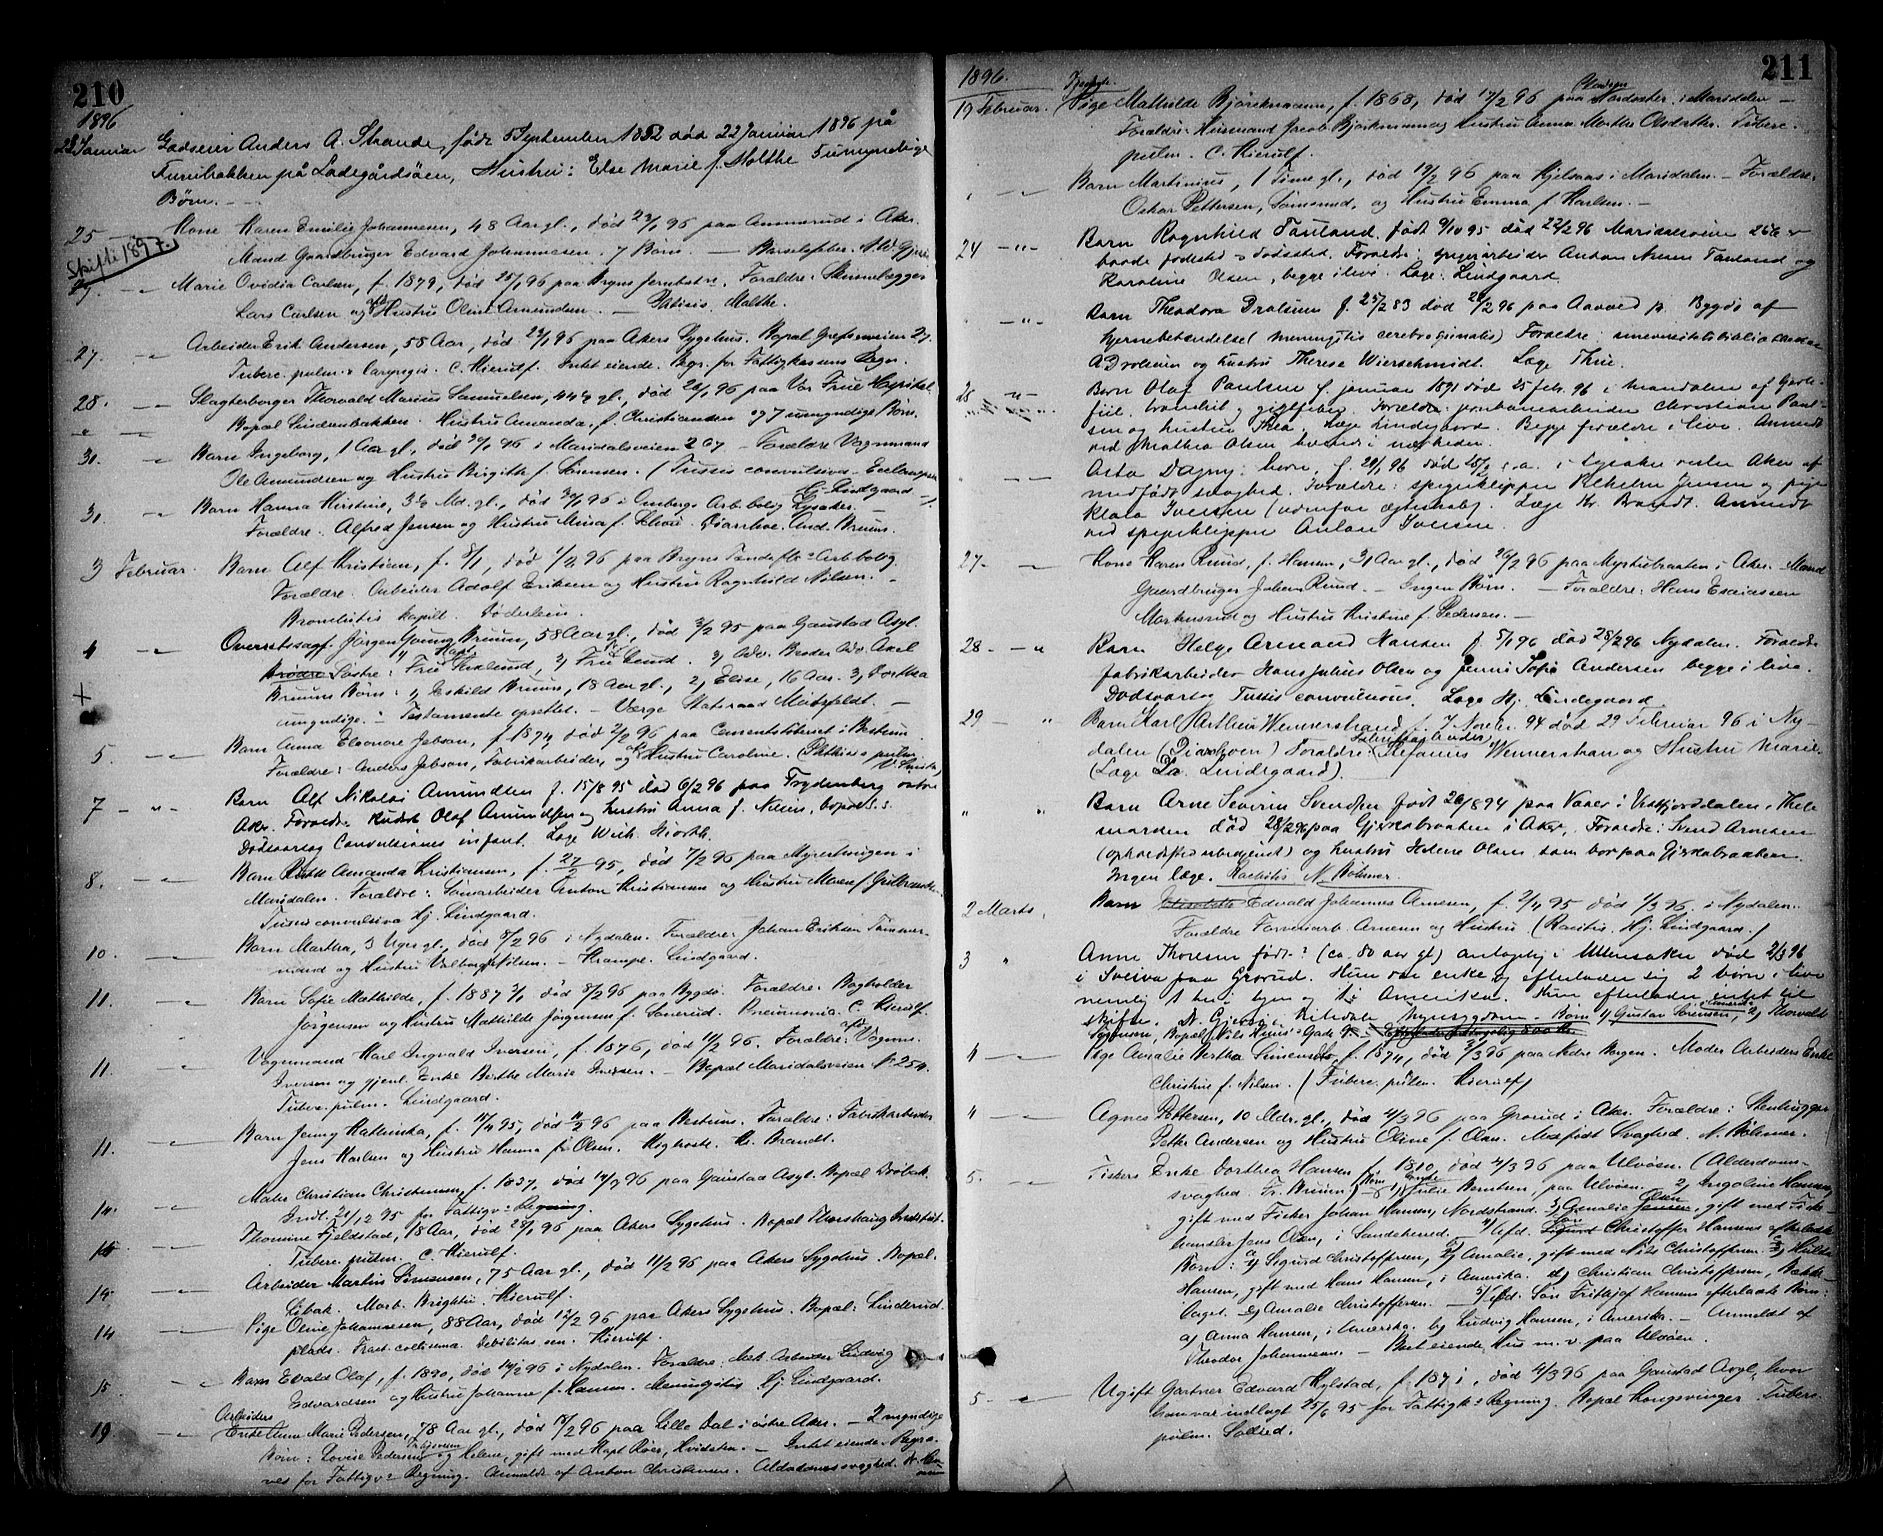 210
1896
22 Januar Godseier Anders A. Strande, født 5 September 1852 død 22 Januar 1896 på
Furubakken på Ladegårdsöen, Hustru: Else Marie f. Molthe 5 umyndige
Børn. —
25 — Kone Karen Emilie Johannesen, 48 Aar gl., død 23/1 96 paa Ammerud i Aker.
Skifte 1897.
Mand Gaardbruger Edvard Johannesen. 7 Børn. —
Marie Ovidia Carlsen, f. 1879, død 25/1 96 paa Bryns Jernbst. Foræld
Lars Carlsen og Hustru Oline Amundsen. — Phtisis. Malthe.
27. — Arbeider Erik Andersen, 58 Aar, død 24/1 96 paa Akers Sygehus. Bopæl Grefsenveien 27.
Tuberc. pulm. & laryngis. C. Hierulf. Intet eiende. Begr. for Fattigkassens Regn.
28. — Slagterborger Thorvald Marius Samuelsen, 44 gl., død 28/1 96 paa Vor Frue Hospital.
Bopæl Lindernbakken. Hustru Amanda, f. Christiansen og 7 umyndige Børn.
30. — Barn Ingeborg, 1 Aar gl., død 30/1 96 i Maridalsveien 207 — Forældre Vognmand
Ole Amundsen og Hustru Birgithe f. Sørensen. (Tussis convulsiva — Eclampsia
Hj. Lindgaard —)
31 — Barn Hanna Kirstine, 3½ Md. gl., død 30/1 96 i Ombergs Arb.bolig Lysaker. —
Forældre: Alfred Jensen og Hustru Mina f. Diarrhoe. And. Bruun.
3 Februar. Barn Alf Kristian, f. 8/1, død 1/2 96 paa Bryns Tændst. Arb.bolig
Forældre: Arbeider Adolf Eriksen og Hustru Ragnhild Nilsen. —
Bronchitis kapill. Söderlein.
4 — Overretssagf. Jørgen Young Bruun, 58 Aar gl., død 3/2 95 paa Gaustad Asyl.
Søstre: Fru Lund. 3) Adv. Broder Adv. Axel
Bruuns Børn: 1) Eskild Bruun, 18 Aar gl., 2) Elise, 16 Aar. 3) Dorthea
umyndige. — Testamente oprettet. — Værge Statsraad Motzfeldt. —
5. — Barn Anna Eleonore Jebsen, f. 1874 død 2/2 96 paa Cementstøberiet i Bestum.
Forældre: Anders Jebsen, Fabrikarbeider, og Hustru Caroline. (Phthisis pulm.
7 — " — Barn Alf Nikolai Amundsen f. 15/8 95 død 6/2 96 paa Frydenberg østre
Aker. Forældre Kudsk Olaf Amundsen og hustru Anna f. Nilsen, bopæl s.s.
Dødsaarsag Convulsiones infant. Læge Wilh. Hjorth.
8. — Barn Ruth Amanda Kristiansen, f. 27/2 95, død 7/2 96 paa Myrerhaugen i
Maridalen. Forældre: Sönarbeider Anton Kristiansen og Hustru Maren f. Gulbrandsen.
Tussis convulsiva Hj. Lindgaard.
10. — Barn Martha, 3 Uger gl., død 8/2 96 i Nydalen. Forældre: Johan Eriksen Tömmer-
mand og Hustru Valborg Nilsen. — Krampe. Lindgaard.
11. — Barn Sofie Mathilde, f. 1887 3/1 død 8/2 96 paa Bygdø. Forældre: Bogholder
Jörgensen og Hustru Mathilde Jörgensen f. Sonerud. Pneumonia. C. Hierulf.
11. — Vognmand Karl Ingvald Iversen, f. 1876, død 11/2 96. Forældre: Vognm.
Iversen og gjenl. Enke Berthe Marie Iversen. — Bopæl Maridalsveien No 254.
Tuberc. pulm. Lindgaard.
11. — Barn Jenny Kathinka, f. 17/4 95, død 11/2 96 paa Bestum. Forældre: Fabrikarbeider
Jens Karlsen og Hustru Hanna f. Olsen. Kighoste. Kr. Brandt.
14. — Maler Christian Christensen, f. 1837, død 14/2 96 paa Gaustad Asyl. Bopæl Drøbak.
Indl. 21/12 95 for Fattigv. Regning.
— Thomine Fjeldstad, 18 Aar, død 28/1 96 paa Akers Sygehus. Bopæl Thorshaug Institut.
Tuberc. pulm. C. Hierulf.
14. — Arbeider Martin Simensen, 75 Aar gl., død 11/2 96 paa Akers Sygehus. Bopæl.
Morb. Brightii. Hierulf.
14 — Pige Oline Johannesen, 88 Aar, død 12/2 96 paa Akers Sygehus. Bopæl: Linderud
plads. Debilitas sen. Hierulf.
15. — Barn Evald Olaf, f. 1890, død 14/2 96 i Nydalen. Forældre: Mek. Arbeider Ludvig
Edvardsen og Hustru Johanne f. Hansen. Meningitis. Hj. Lindgaard.
Arbeiders
19. — Enke Anna Marie Pedersen, 78 Aar gl., død 17/2 96 paa Lille Dal i østre Aker. — 2 myndige
Børn: Lovise Pedersen og Helene, gift med Kapt. Röer, Hvidsten. — Intet eiende. Begra-
ves for Fattigv. Regning. Anmeldt af Anton Christensen. Alderdomssvaghed.
211
1896.
19 Februar. Pige Mathilde Björkmann, f. 1868, død 17/2 96 paa Nordseter i Maridalen —
Forældre: Husmand Jacob Björkmann og Hustru Anna Marthe Olsdatter. Tuberc.
pulm. C. Hierulf.
— " — Barn Martinius, 1 Time gl., død 19/2 96 paa Kjelsaas i Maridalen. — Forældre:
Oskar Pettersen, Sömmand, og Hustru Emma f. Karlsen. —
24 — " — Barn Ragnhild Tauland. født 9/10 95 død 22/2 96 Maridalsveien 26
baade fødested & dødssted. Forældre: spigerarbeider Anton Nilsen Tauland og
Karoline Olsen, begge i live. Læge: Lindgaard.
— " — Barn Theodora Drolsum f. 25/2 83 død 22/2 96 paa Aavold pr. Bygdø af
hjernebetændelse (meningitis cerebrospinalis) Forældre: universitetsbibliothekar
A Drolsum og hustru Therese Wierschmidt. Læge Thue.
25 — " — Barn Olaf Paulsen f. januar 1891 død 25 febr. 96 i Maridalen af
bronchit & gigtfeber. Forældre: jernbanearbeider Christian Paul-
sen og hustru Thea. Læge Lindegaard. Begge forældre i live. Anmeldt
ved Mathea Olsen boende i nærheden.
— " — Asta Dagny Iversen, f. 28/1 96 død 25/2 s.a. i Lysaker vestre Aker af
medfødt svaghed. Forældre: spigerklipper Vilhelm Jensen og pige
Klara Iversen (udenfor ægteskab). Læge Kr Brandt. Anmeldt
ved spigerklipper Anton Iversen.
27. — Kone Karen Ruud, f. Hansen, 31 Aar gl., død 26/2 96 paa Myrstubraaten i Aker. Mand
Gaardbruger Johan Ruud. — Ingen Børn. — Forældre: Hans Esaiassen
Markusrud og Hustru Kristine f. Pedersen. —
28 — " Barn Helge Armand Hansen f. 5/1 96 død 28/2 96 Nydalen. Foræld:
fabrikarbeider Hans Julius Olsen og Jenni Sofie Andersen begge i live.
Dødsaarsag Tussis convulsions. Læge Hj. Lindegaard
29 — " Barn Karl Arthur Wennerstrand f. 7 Novbr. 94 død 29 Februar 96 i Ny-
dalen (Diarhoen) Forældre: Fabrikarbeider Stefanus Wennerstran og Hustru Marie
(Læge Dr. Lindegaard).
" " Barn Arne Severin Svendsen født 26/8 94 paa Vaaer i Vestfjorddalen, Thele-
marken død 28/2 96 paa Gjerskabraaten i Aker. Forældre: Svend Arnesen
og hustru Helene Olsen som bor paa Gjerskabraaten.
Ingen læge. Rachitis N. Böhmer.
2 Marts, Barn Edvald Johannes Arnesen, f. 2/4 95 død 1/3 96 i Nydalen.
Forældre Farveriarb. Arnesen og Hustru (Rachitis. Hj. Lindgaard.)
3 " Anne Thoresen født? (ca. 80 aar gl) antagelig i Ullensaker død 2/3 96
i Solliva paa Grorud. Hun var enke og efterlader sig 2 børn i live
nemlig 1 her i byen og 1 i Amerika. Hun efterlader intet til
skifte. Børn 1) Gustav Sörensen, i Amerika 2) Thorvald
Bopæl Nils Huus' Gade
4 — Pige Amalie Bertha Simensen, f. 1874, død 3/3 96 paa Nedre Vargen. Moder Arbeiders Enke
Christine f. Nilsen. (Tuberc. pulm. Hierulf)
4 — Agnes Pettersen, 10 Mdr. gl., død 4/3 96 paa Grorud i Aker. Forældre: Stenhugger
Petter Andersen og Hustru Oline f. Olsen. Medfödt Svaghed. N. Böhmer.
5. — Fiskers Enke Dorthea Hansen f. 1810, død 4/3 96 paa Ulvöen. (Alderdoms-
svaghed. Fr. Bruun) Børn: 1) Enke Julie Berntsen, paa Ulvöen. 2) Ingoline Hansen,
gift med Fisker Johan Hansen, Nordstrand. 3) Amalie Olsen, gift med Fiske-
handler Jens Olsen, i Sandekered. 4) Afd. Søn Christoffer Hansens efterladte
Børn: a) Sigurd Christoffersen, b) Amalie, gift med Nils Christoffersen. c) Hulda
Hansen, gift med Hans Hansen, i Amerika. d) Christian Christoffersen, Bække-
laget. e) Amalie Christoffersen. — 5) Afd. Søn Fritjof Hansens efterladte Børn:
a) Anna Hansen, i Amerika. b) Ludvig Hansen, i Amerika. — Anmeldt af
Theodor Johannesen. — Boet eiende, Hus m. v. paa Ulvöen.
5 — Ugift Gartner Edvard Kylstad, f. 1871, død 4/3 96 paa Gaustad Asyl, hvor
han var indlagt 25/6 95 for Fattigk. Regning. Bopæl Kongsvinger. Tuberc.
pulm.